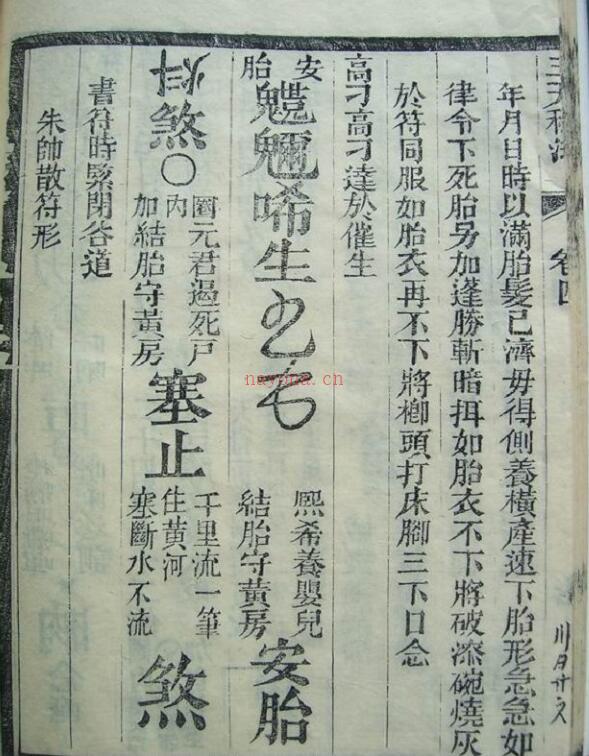 三天秘法 卷四
年月日時以滿胎髮已濟毋得側養橫產速下胎形急急如
律令下死胎另加逢勝斬暗挕如胎衣不下將破漆碗燒灰
於符同服如胎衣再不下將榔頭打床腳三下口念
高刁高刁達於催生
安胎
生
熙希養嬰兒
結胎守黃房
安胎
煞〇
圈內元君遏死户
加結胎守黃房
塞止
千里流一筆
住黃河
塞斷水不流
煞
書符時緊閉谷道
朱帥散符形
nayona.cn